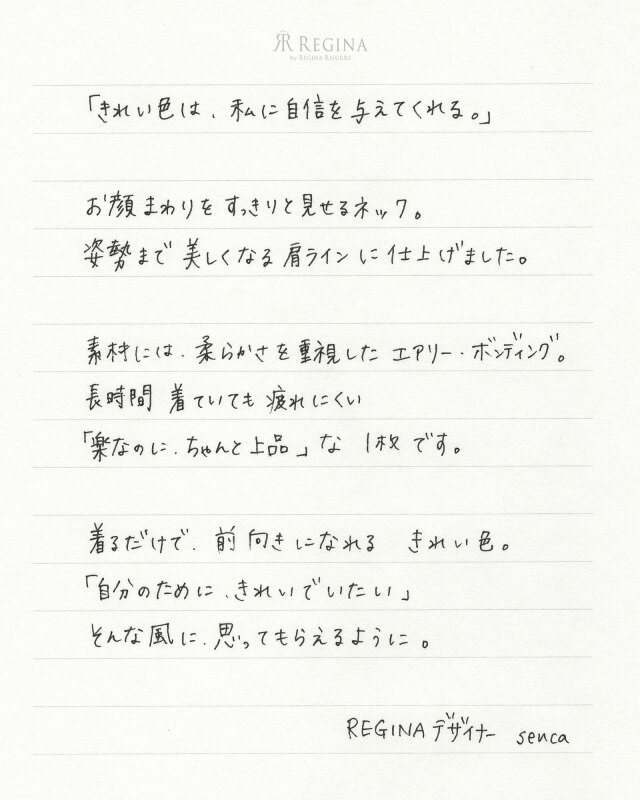 RR REGINA
by REGINA RISURRE
「きれい色は、私に自信を与えてくれる。」
お顔まわりをすっきりと見せるネック。
姿勢まで美しくなる肩ラインに仕上げました。
素材には、柔らかさを重視したエアリー・ボンディング。
長時間着ていても疲れにくい
「楽なのに、ちゃんと上品」な1枚です。
着るだけで、前向きになれる きれい色。
「自分のために、きれいでいたい」
そんな風に、思ってもらえるように。
REGINAデザイナー senca